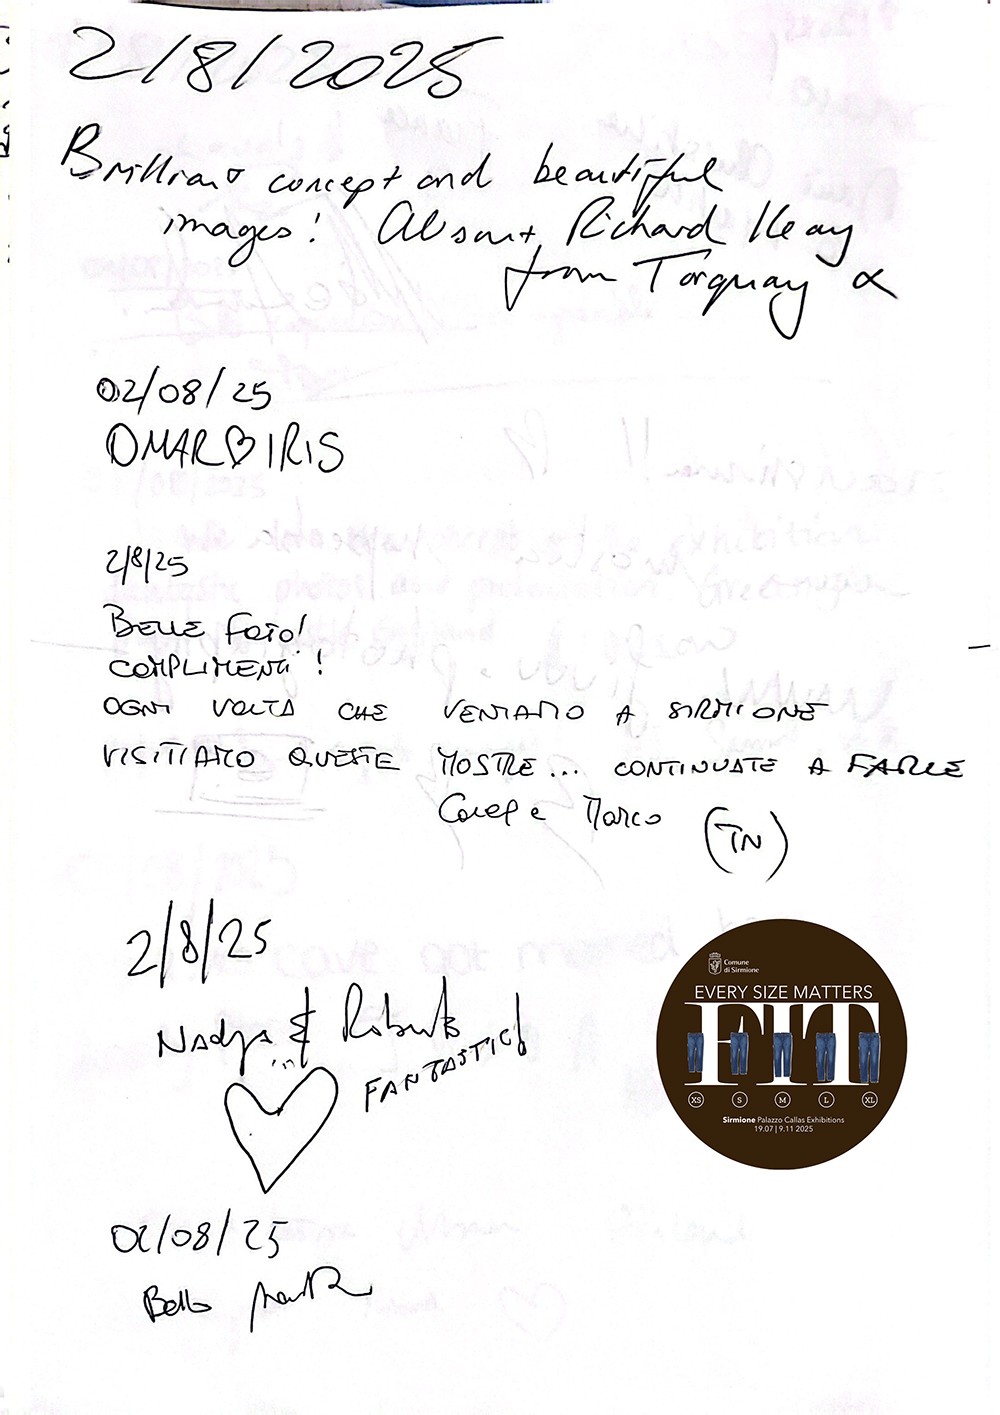 2/8/2025
Brilliant concept and beautiful
images! Alison + Richard Keay
from Torquay
02/08/25
OMAR ♡ IRIS
2/8/25
BELLE FOTO!
COMPLIMENTI!
OGNI VOLTA CHE VENIAMO A SIRMIONE
VISITIAMO QUESTE MOSTRE... CONTINUATE A FARLE
e Marco (TN)
2/8/25
Nadja & Roberto
FANTASTIC!
02/08/25
Bella
Comune
di Sirmione
EVERY SIZE MATTERS
FIT
XS S M L XL
Sirmione Palazzo Callas Exhibitions
19.07 | 9.11 2025